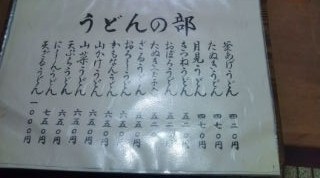 うどんの部
釜あげうどん 四二〇円
たぬきうどん 四七〇円
月見うどん 四七〇円
きつねうどん 五二〇円
おぼろうどん 五二〇円
たぬき
ざるうどん
おろしうどん 六五〇円
かもなんうどん 六五〇円
山かけうどん 六五〇円
山菜うどん 六五〇円
天ぷらうどん 六五〇円
にしんうどん 七五〇円
天ざるうどん 一〇〇〇円